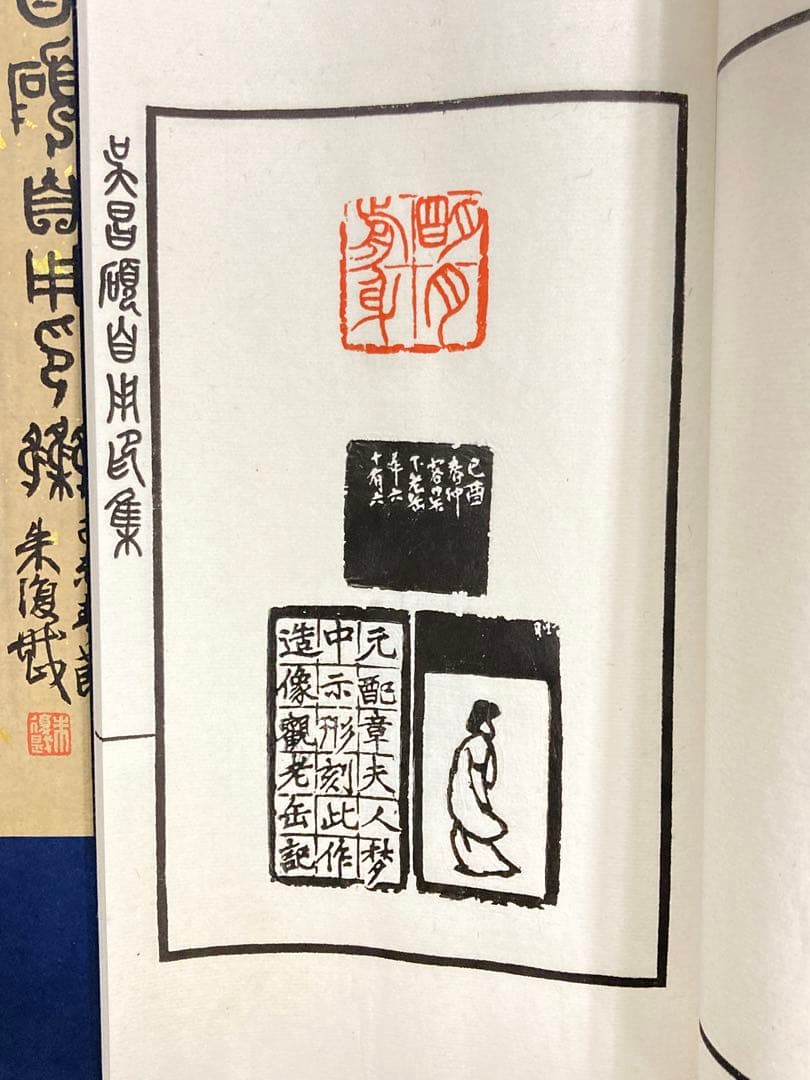 吳昌碩自用印集
明月
前身
己酉
春仲
客吳
下老缶
年六
十有六
元配章夫人梦
中示形刻此作
造像觀老缶記
碩自用印集
朱復戡
朱復戡